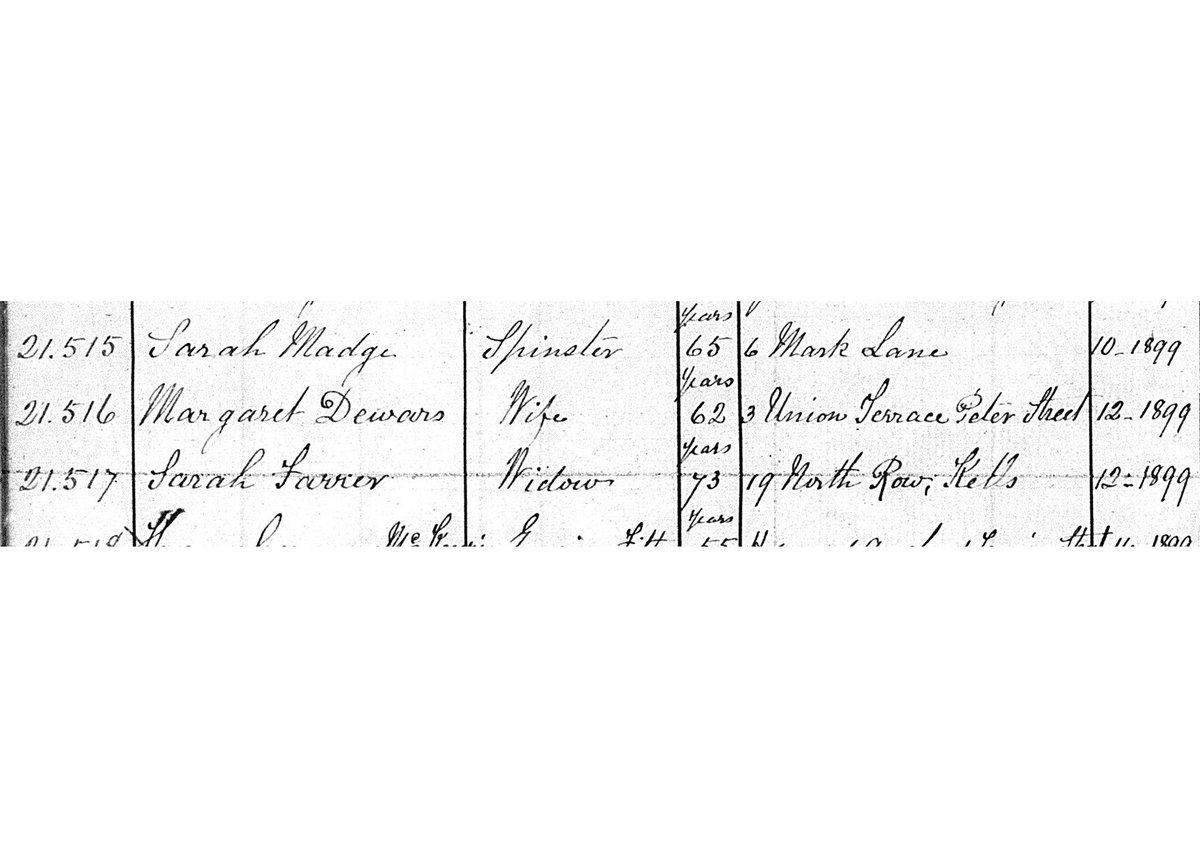 years
21.515 Sarah Madge Spinster 65 6 Mark Lane 10-1899
years
21.516 Margaret Dewars Wife 62 3 Union Terrace Peter Street 12-1899
years
21.517 Sarah Farrer Widow 73 19 North Row, Kells 12-1899
years
21.518 55 1899